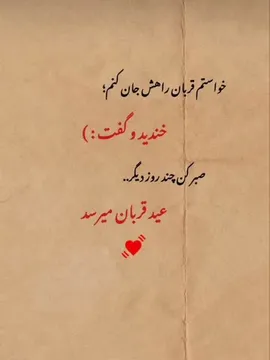 خواستم قربان راهش جان کنم؛
خندید و گفت : )
صبر کن چند روز دیگر..
عید قربان میرسد